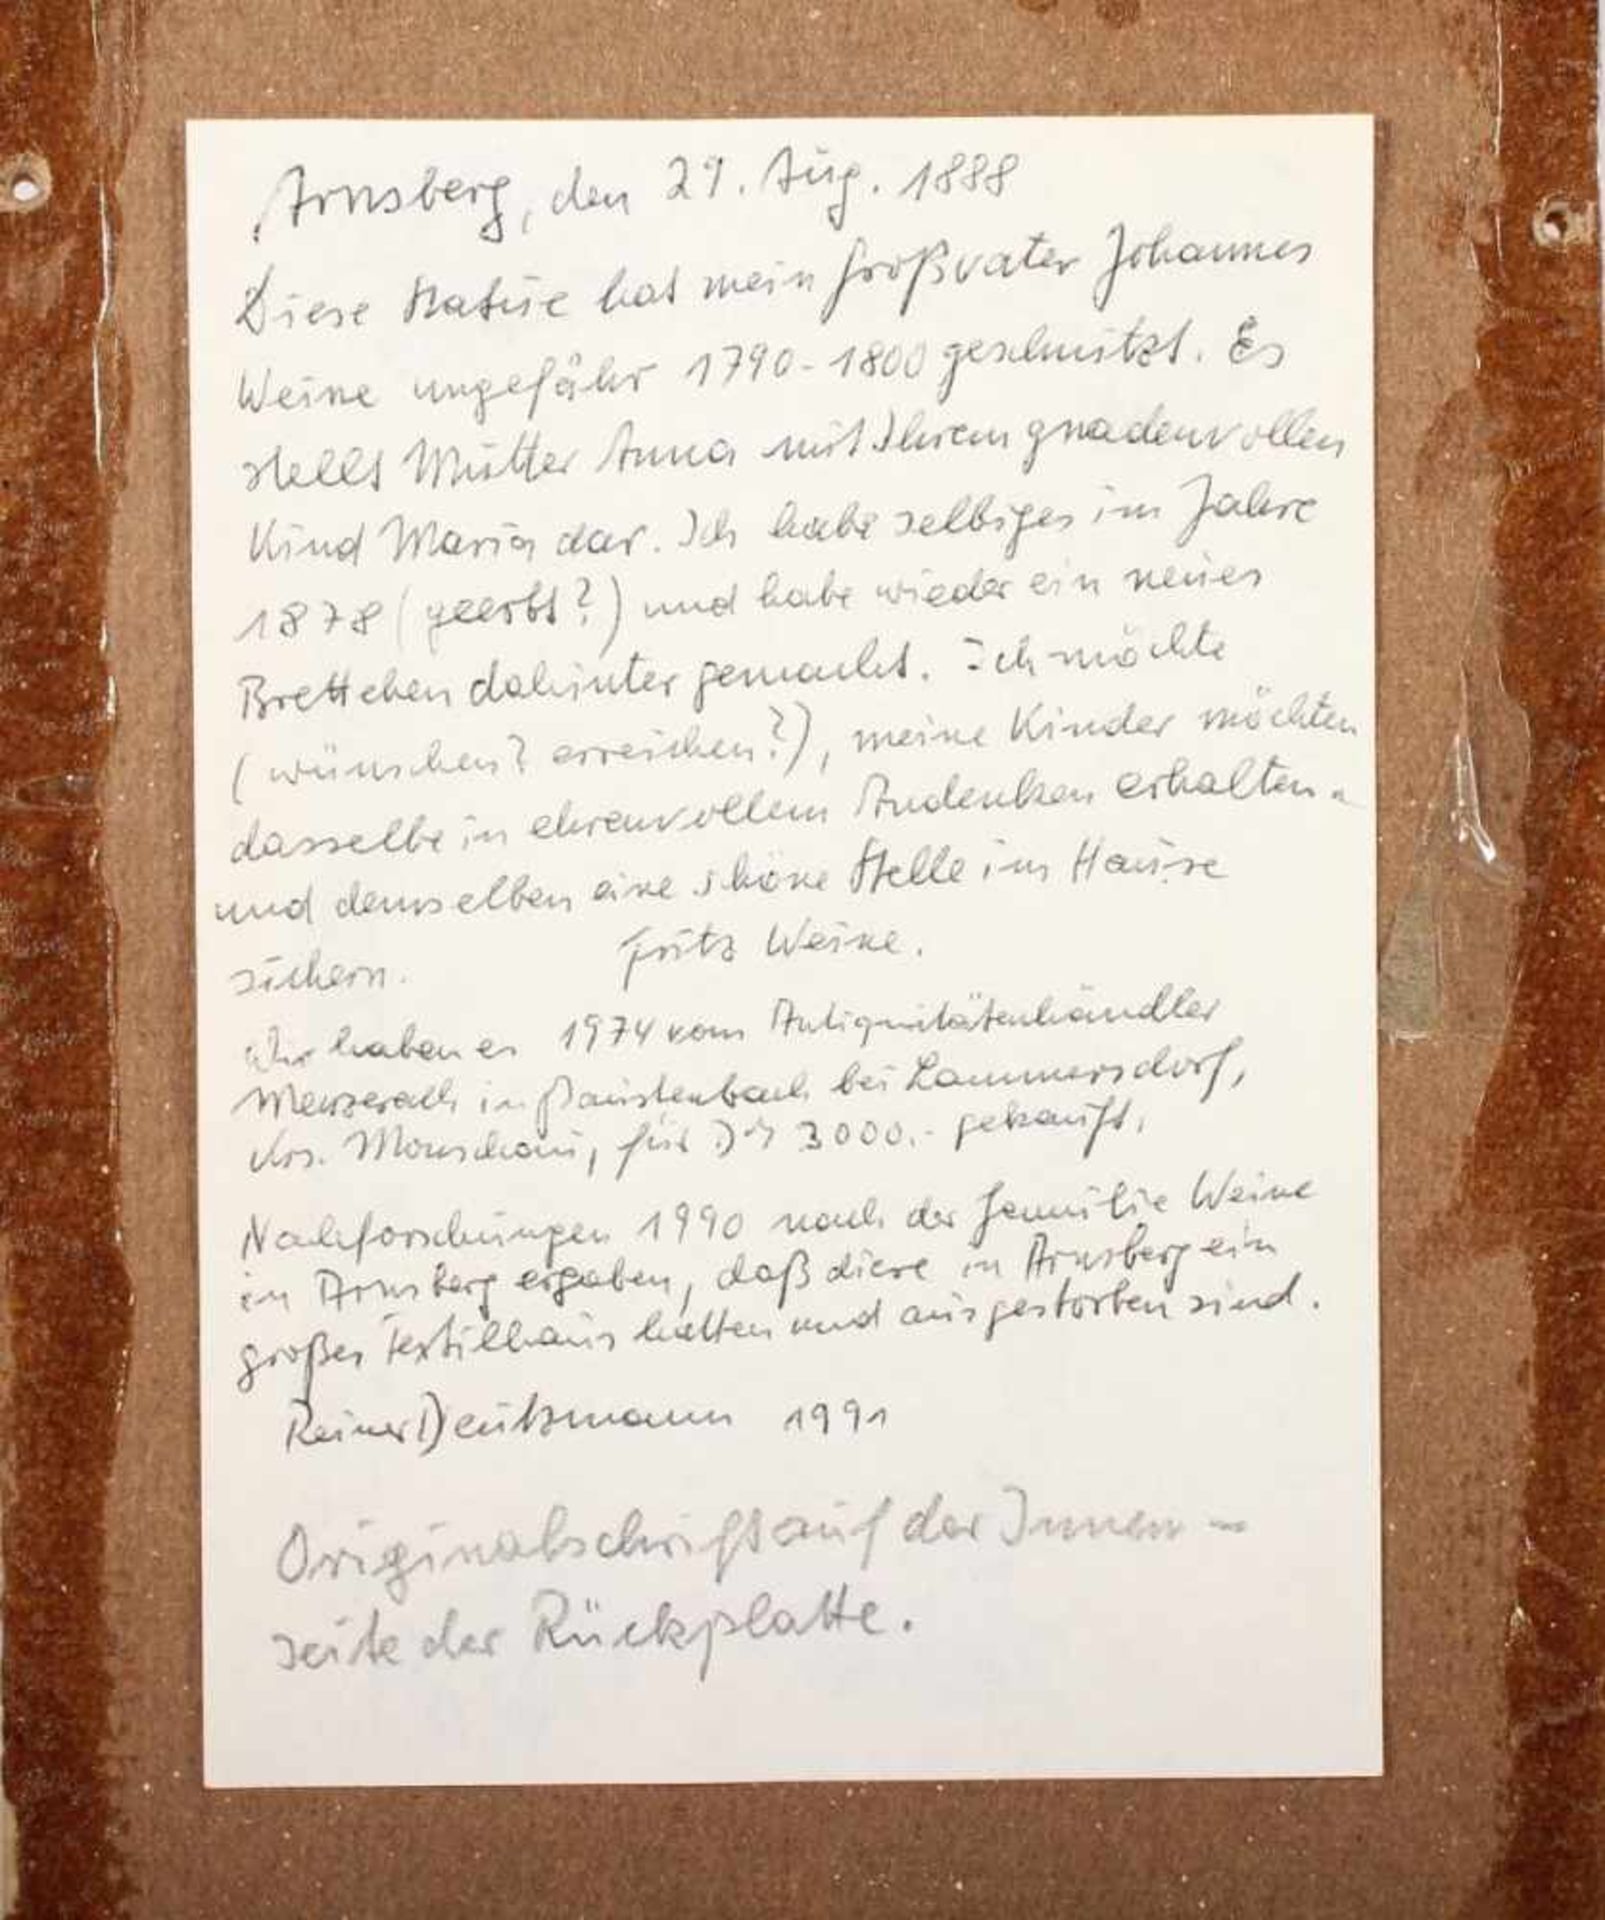 Arnsberg, den 29. Aug. 1888
Diese Statue hat mein Großvater Johannes
Weine ungefähr 1790-1800 geschnitzt. Es
stellt Mutter Anna mit Ihrem gnadenvollen
Kind Maria dar. Ich habe selbiges im Jahre
1878 (geerbt?) und habe wieder ein neues
Brettchen dahinter gemacht. Ich möchte
(wünschen? erreichen?), meine Kinder möchten
dasselbe in ehrenvollem Andenken erhalten
und demselben eine schöne Stelle im Hause
sichern. Fritz Weine.
Wir haben es 1974 vom Antiquitätenhändler
in Paustenbach bei Lammersdorf,
Krs. Monschau, für DM 3000.- gekauft.
Nachforschungen 1990 nach der Familie Weine
in Arnsberg ergaben, daß diese in Arnsberg ein
großes Textilhaus hatten und ausgestorben sind.
Reiner Deutzmann 1991
Originalschrift auf der Innen-
seite der Rückplatte.